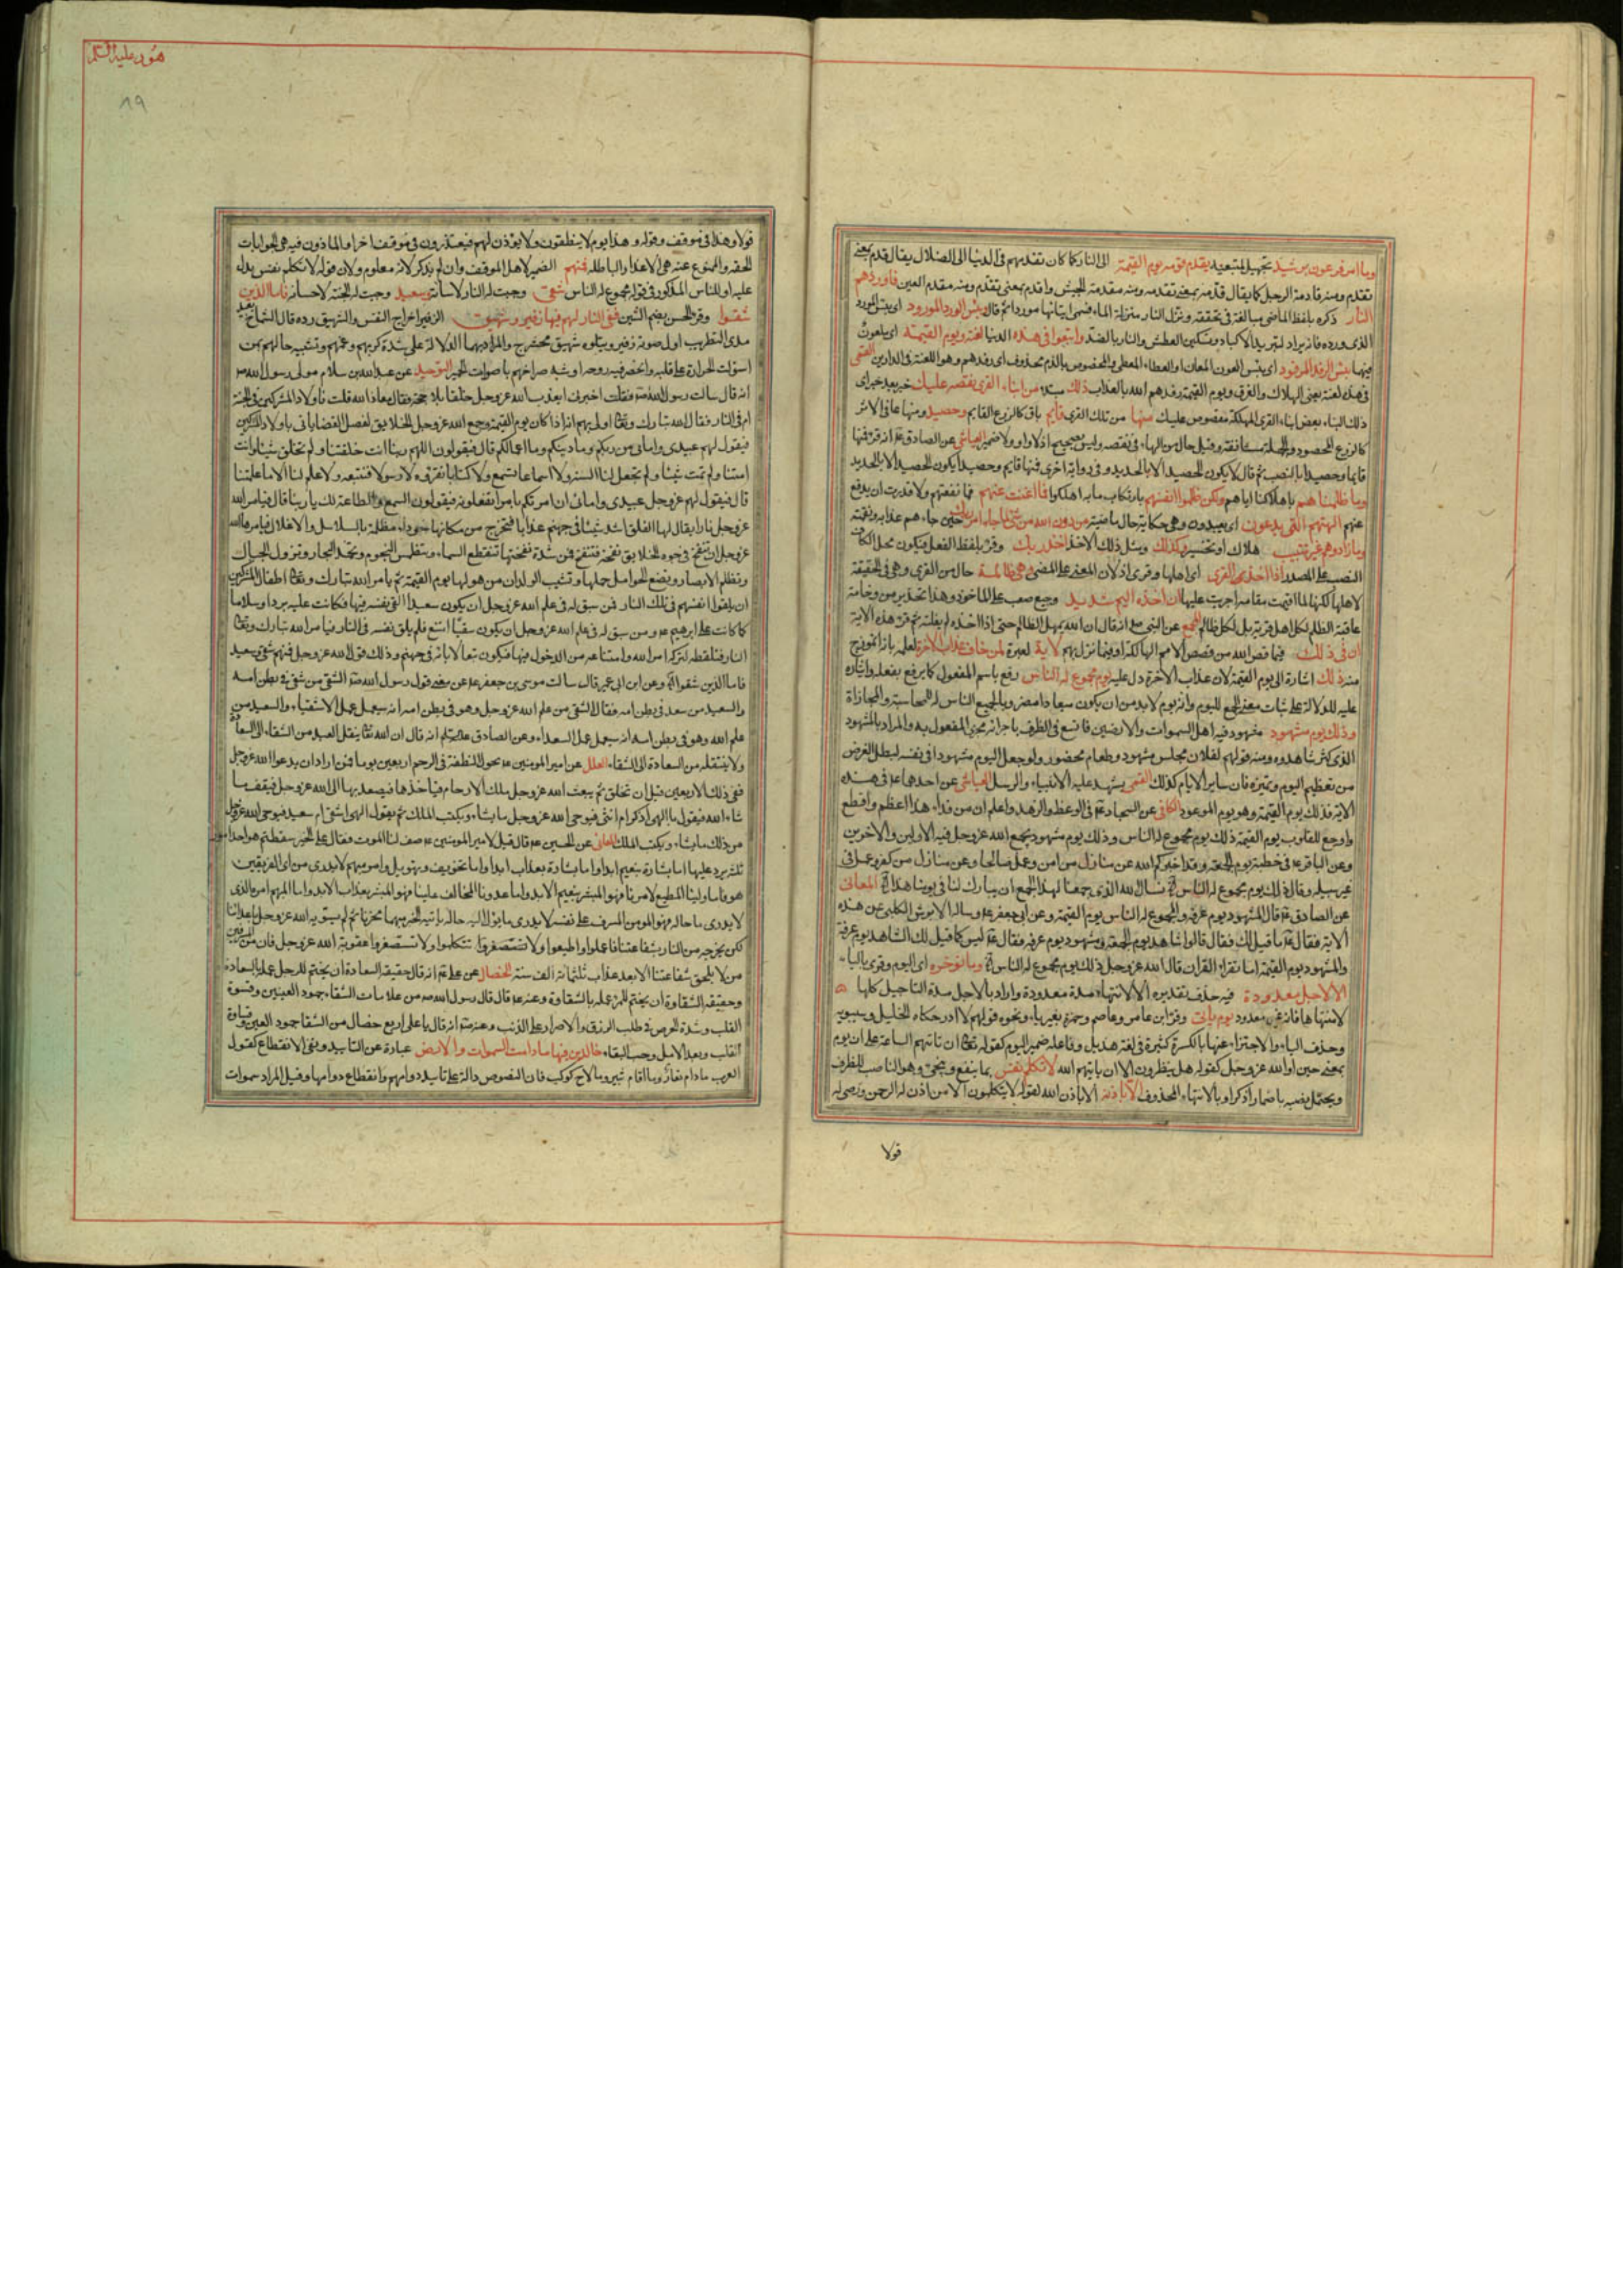 وما امر فرعون برشيد تجهيل لمتبعيه يقدم قومه يوم القيمة الى النار كما كان تقدمهم فى الدنيا الى الضلال يقال قدم بمعنى
تقدم ومنه قادمة الرحل كما يقال قدمه بمعنى تقدمه ومنه مقدمة الجيش واقدم بمعنى تقدم ومنه مقدم العين فاوردهم
النار ذكره بلفظ الماضى مبالغة فى تحققه ونزل النار منزلة الماء فسمى اتيانها موردا ثم قال بئس الورد المورود اى بئس المورد
الذى وردوه فانه يراد لتبريد الاكباد وتسكين العطش والنار بالضد واتبعوا فى هذه الدنيا لعنة ويوم القيمة اى يلعنون
فيها بئس الرفد المرفود اى بئس العون المعان او العطاء المعطى والمخصوص بالذم محذوف اى رفدهم وهو اللعنة فى الدارين القمى
فى هذه لعنة يعنى الهلاك والغرق ويوم القيمة رفدهم الله بالعذاب ذلك مبتدء من انباء القرى نقصه عليك خبر بعد خبر اى
ذلك النباء بعض انباء القرى المهلكة مقصوص عليك منها من تلك القرى قايم باق كالزرع القايم وحصيد ومنها عافى الاثر
كالزرع المحصود والجملة مستانفة وقيل حال من الهاء فى نقصه وليس بصحيح اذ لا واو ولا ضمير العياشى عن الصادق انه قرء فمنها
قايما وحصيدا بالنصب ثم قال لا يكون الحصيد الا بالحديد وفى رواية اخرى فمنها قايم وحصيد ايكون الحصيد الا بالحديد
وما ظلمناهم باهلاكنا اياهم ولكن ظلموا انفسهم بارتكاب ما به اهلكوا فما اغنت عنهم فما نفعتهم ولا قدرت ان يدفع
عنهم الهتهم التى يدعون اى يعبدون وهى حكاية حال ماضية من دون الله من شئ لما جاء امر ربك حين جاءهم عذابه ونقمته
وما زادوهم غير تتبيب هلاك او تخسير وكذلك ومثل ذلك الاخذ اخذ ربك وقرئ بلفظ الفعل فيكون محل الكاف
النصب على المصدر اذا اخذ القرى اى اهلها وقرى اذ لان المعنى على المضى وهى ظالمة حال من القرى وهى فى الحقيقة
لاهلها لكنها لما اقيمت مقامه اجريت عليها ان اخذه اليم شديد وجيع صعب على الماخوذ وهذا تحذير من وخامة
عاقبة الظلم لكل اهل قرية بل لكل ظالم المجمع عن النبى ص انه قال ان الله يمهل الظالم حتى اذا اخذه لم يفلته ثم قرء هذه الاية
ان فى ذلك فيما قص الله من قصص الامم الهالكة او فيما نزل بهم لاية لعبرة لمن خاف عذاب الاخرة لعلمه بانه انموذج
منه ذلك اشارة الى يوم القيمة لان عذاب الاخرة دل عليه يوم مجموع له الناس رفع باسم المفعول كما يرفع بفعله وايثاره
عليه للدلالة على ثبات معنى الجمع لليوم وانه يوم لابد من ان يكون ميعادا مضروبا لجمع الناس له للمحاسبة والمجازاة
وذلك يوم مشهود مشهود فيه اهل السموات والارضين فاتسع فى الظرف باجرائه مجرى المفعول به والمراد بالمشهود
الذى كثر شاهدوه ومنه قولهم لفلان مجلس مشهود وطعام محضور ولو جعل اليوم مشهودا فى نفسه لبطل الغرض
من تعظيم اليوم وتميزه فان ساير الايام كذلك القمى يشهد عليه الانبياء والرسل العياشى عن احدهما ع فى هذه
الاية فذلك يوم القيمة وهو يوم الموعود الكافى عن السجاد ع فى الوعظ والزهد واعلم ان من وراء هذا اعظم وافظع
واوجع للقلوب يوم القيمة ذلك يوم مجموع له الناس وذلك يوم مشهود يجمع الله عز وجل فيه الاولين والاخرين
وعن الباقر ع فى خطبة يوم الجمعة وقد اخبركم الله عن منازل من امن وعمل صالحا وعن منازل من كفر وعمل فى
غير سبيله وقال ذلك يوم مجموع له الناس الاية نسال الله الذى جمعنا لهذا الجمع ان يبارك لنا فى يومنا هذا المعانى
عن الصادق ع قال المشهود يوم عرفة والمجموع له الناس يوم القيمة وعن ابى جعفر ع وساله الابرش الكلبى عن هذه
الاية فقال ع ما قيل لك فقال قالوا شاهد يوم الجمعة ومشهود يوم عرفة فقال ع ليس كما قيل لك الشاهد يوم عرفة
والمشهود يوم القيمة اما تقراء القران قال الله عز وجل ذلك يوم مجموع له الناس الاية وما نؤخره اى اليوم وقرى بالياء
الا لاجل معدودة فيه حذف تقديره الا لانتهاء مدة معدودة واراد بالاجل مدة التاجيل كلها
لا منتهاها فانه غير معدود يوم يات وقرء ابن عامر وعاصم وحمزة بغير ياء ونحوه قولهم لا ادر حكاه الخليل وسيبويه
وحذف الياء والاجتزاء عنها بالكسرة كثيرة فى لغة هذيل وفاعله ضمير اليوم كقوله تعالى ان تاتيهم الساعة على ان يوم
بمعنى حين او الله عز وجل كقوله هل ينظرون الا ان ياتيهم الله لا تكلم نفس بما ينفع وينجى وهو الناصب للظرف
ويحتمل نصبه باضمار اذكر او بالانتهاء المحذوف الا باذنه الا باذن الله لقوله لا يتكلمون الا من اذن له الرحمن ورضى له
قولا
هود عليه السلم
٨٩
قولا وهذا فى موقف وقوله وهذا يوم لا ينطقون ولا يؤذن لهم فيعتذرون فى موقف اخر او الماذون فيه هى الجوابات
الحقة والممنوع عنه هى الاعذار الباطلة فمنهم الضمير لاهل الموقف وان لم يذكر لانه معلوم ولان قوله لا تكلم نفس يدل
عليه او للناس المذكور فى قوله مجموع له الناس شقى وجبت له النار لاسائته وسعيد وجبت له الجنة لاحسانه فاما الذين
شقوا وقرء الحسن بضم الشين ففى النار لهم فيها زفير وشهيق الزفير اخراج النفس والشهيق رده قال الشماخ بعيد
مدى التطريب اول صوته زفير ويتلوه شهيق محشرج والمراد بهما الدلالة على شدة كربهم وغمهم وتشبيه حالهم بمن
استولت الحرارة على قلبه وانحصر فيه روحه او شبه صراخهم باصوات الحمير التوحيد عن عبد الله بن سلام مولى رسول الله ص
انه قال سالت رسول الله ص فقلت اخبرنى ايعذب الله عز وجل خلقا بلا حجة فقال معاذ الله قلت فاولاد المشركين فى الجنة
ام فى النار فقال الله تبارك وتعالى اولى بهم انه اذا كان يوم القيمة وجمع الله عز وجل الخلايق لفصل القضايا اتى باولاد المشركين
فيقول لهم عبيدى وامائى من ربكم وما دينكم وما اعمالكم قال فيقولون اللهم ربنا انت خلقتنا ولم تخلق شيئا وانت
امتنا ولم تمت شيئا ولم تجعل لنا السنة ولا اسماعا تسمع ولا كتابا نقرؤه ولا رسولا فنتبعه ولا علم لنا الا ما علمتنا
قال فيقول لهم عز وجل عبيدى وامائى ان امرتكم بامر اتفعلونه فيقولون السمع والطاعة لك يا ربنا قال فيامر الله
عز وجل نارا يقال لها الفلق اشد شيئا فى جهنم عذابا فتخرج من مكانها سوداء مظلمة بالسلاسل والاغلال فيامرها الله
عز وجل ان تنفخ فى وجوه الخلايق نفخة فتنفخ فمن شدة نفختها تنقطع السماء وتنطمس النجوم وتجمد البحار وتزول الجبال
وتظلم الابصار وتضع الحوامل حملها وتشيب الولدان من هولها يوم القيمة ثم يامر الله تبارك وتعالى اطفال المشركين
ان يلقوا انفسهم فى تلك النار فمن سبق له فى علم الله عز وجل ان يكون سعيدا القى نفسه فيها فكانت عليه بردا وسلاما
كما كانت على ابرهيم ع ومن سبق له فى علم الله عز وجل ان يكون شقيا امتنع فلم يلق نفسه فى النار فيامر الله تبارك وتعالى
النار فتلقطه لتركه امر الله وامتناعه من الدخول فيها فيكون تبعا لابائه فى جهنم وذلك قول الله عز وجل فمنهم شقى وسعيد
فاما الذين شقوا الاية وعن ابن ابى عمير قال سالت موسى بن جعفر ع عن معنى قول رسول الله ص الشقى من شقى فى بطن امه
والسعيد من سعد فى بطن امه فقال الشقى من علم الله عز وجل وهو فى بطن امه انه سيعمل عمل الاشقياء والسعيد من
علم الله وهو فى بطن امه انه سيعمل عمل السعداء وعن الصادق ع انه قال ان الله تعالى ينقل العبد من الشقاء الى السعادة
ولا ينقله من السعادة الى الشقاء العلل عن امير المومنين ع تحول النطفة فى الرحم اربعين يوما فمن اراد ان يدعوا الله عز وجل
ففى ذلك الاربعين قبل ان تخلق ثم يبعث الله عز وجل ملك الارحام فياخذها فيصعد بها الى الله عز وجل فيقف ما
شاء الله فيقول يا الهى اذكر ام انثى فيوحى الله عز وجل ما يشاء ويكتب الملك ثم يقول الهى اشقى ام سعيد فيوحى الله عز وجل
من ذلك ما يشاء ويكتب الملك المعانى عن الحسين ع قال قيل لامير المومنين ع صف لنا الموت فقال على الخبير سقطتم هو احد امور
ثلثة يرد عليها اما بشارة بنعيم ابدا واما بشارة بعذاب ابدا واما تخويف وتهويل وامر مبهم لا يدرى من اى الفريقين
هو فاما ولينا المطيع لامرنا فهو المبشر بنعيم الابد واما عدونا المخالف علينا فهو المبشر بعذاب الابد واما المبهم امره الذى
لا يدرى ما حاله فهو المومن المسرف على نفسه لا يدرى ما يؤل اليه حاله ياتيه الخبر مبهما مخوفا ثم لم يسويه الله عز وجل باعدائنا
لكن يخرجه من النار بشفاعتنا فاعملوا واطيعوا ولا تتكلوا ولا تستصغروا عقوبة الله عز وجل فان من المسرفين
من لا يلحق شفاعتنا الا بعد عذاب ثلثمائة الف سنة الخصال عن على ع انه قال حقيقة السعادة ان يختم للرجل عمله بالسعادة
وحقيقة الشقاوة ان يختم للمرء عمله بالشقاوة وعنه ع قال قال رسول الله ص من علامات الشقاء جمود العينين وقسوة
القلب وشدة الحرص فى طلب الرزق والاصرار على الذنب وعنه ص انه قال يا على اربع خصال من الشقا جمود العين وقساوة
القلب وبعد الامل وحب البقاء خالدين فيها ما دامت السموات والارض عبارة عن التابيد ونفى الانقطاع كقول
العرب ما دام تعار وما اقام ثبير وما لاح كوكب فان النصوص دالة على تابيد دوامهم وانقطاع دوامها وقيل المراد سموات